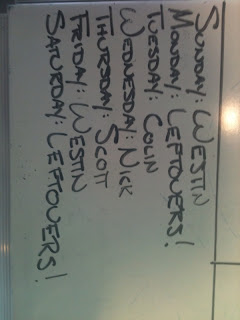 SUNDAY: WESTIN
MONDAY: LEFTOVERS!
TUESDAY: COLIN
WEDNESDAY: NICK
THURSDAY: SCOTT
FRIDAY: WESTIN
SATURDAY: LEFTOVERS!